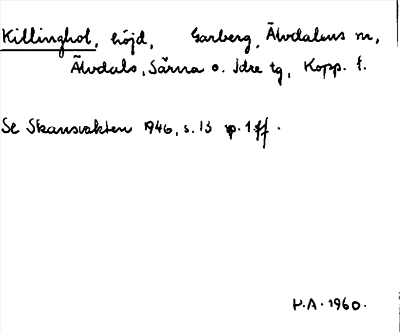 Killinghol, höjd, Garberg, Älvdalens sn,
Älvdals, Särna o. Idre tg, Kopp. l.
Se Skansvakten 1946, s. 13 sp. 1 ff.
H.A. 1960.